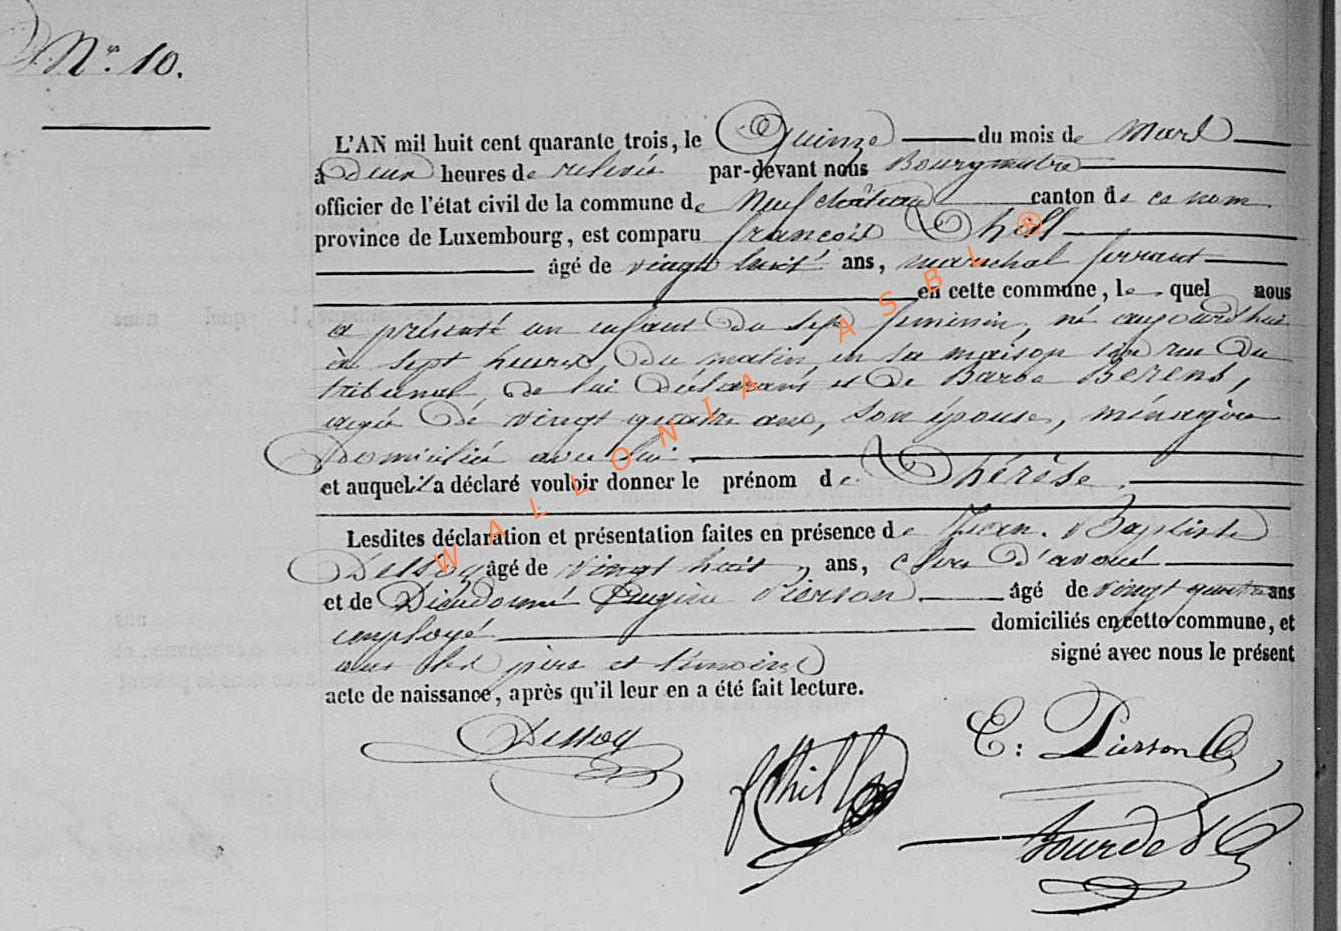 N° 10.
L'AN mil huit cent quarante trois, le Quinze du mois de Mars
à Deux heures de relevée par-devant nous Bourgmestre
officier de l'état civil de la commune de Neufchâteau canton de ce nom
province de Luxembourg, est comparu françois Thill
âgé de vingt huit ans, marechal ferrant
en cette commune, le quel nous
a présenté un enfant du sexe feminin, né aujourd'hui
à sept heures, du matin, en sa maison sise rue Du
tribunal, de lui Déclarant et de Barbe Berens,
agée de vingt quatre ans, son épouse, ménagère
Domiciliée avec lui
et auquel il a déclaré vouloir donner le prénom de Thérèse.
Lesdites déclaration et présentation faites en présence de Jean-Baptiste
Dessoy âgé de vingt huit ans, clerc d'avoué
et de Dieudonné Eugène Pierson âgé de vingt quatre ans
employé domiciliés en cette commune, et
les père et témoins signé avec nous le présent
acte de naissance, après qu'il leur en a été fait lecture.
Dessoy
fThill
E: Pierson
WALLONIA ASBL ®